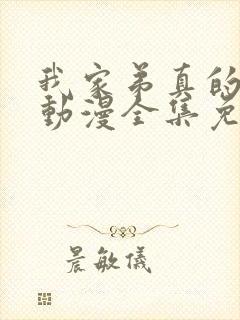 我家弟真的
動漫全集免
晨敏儀